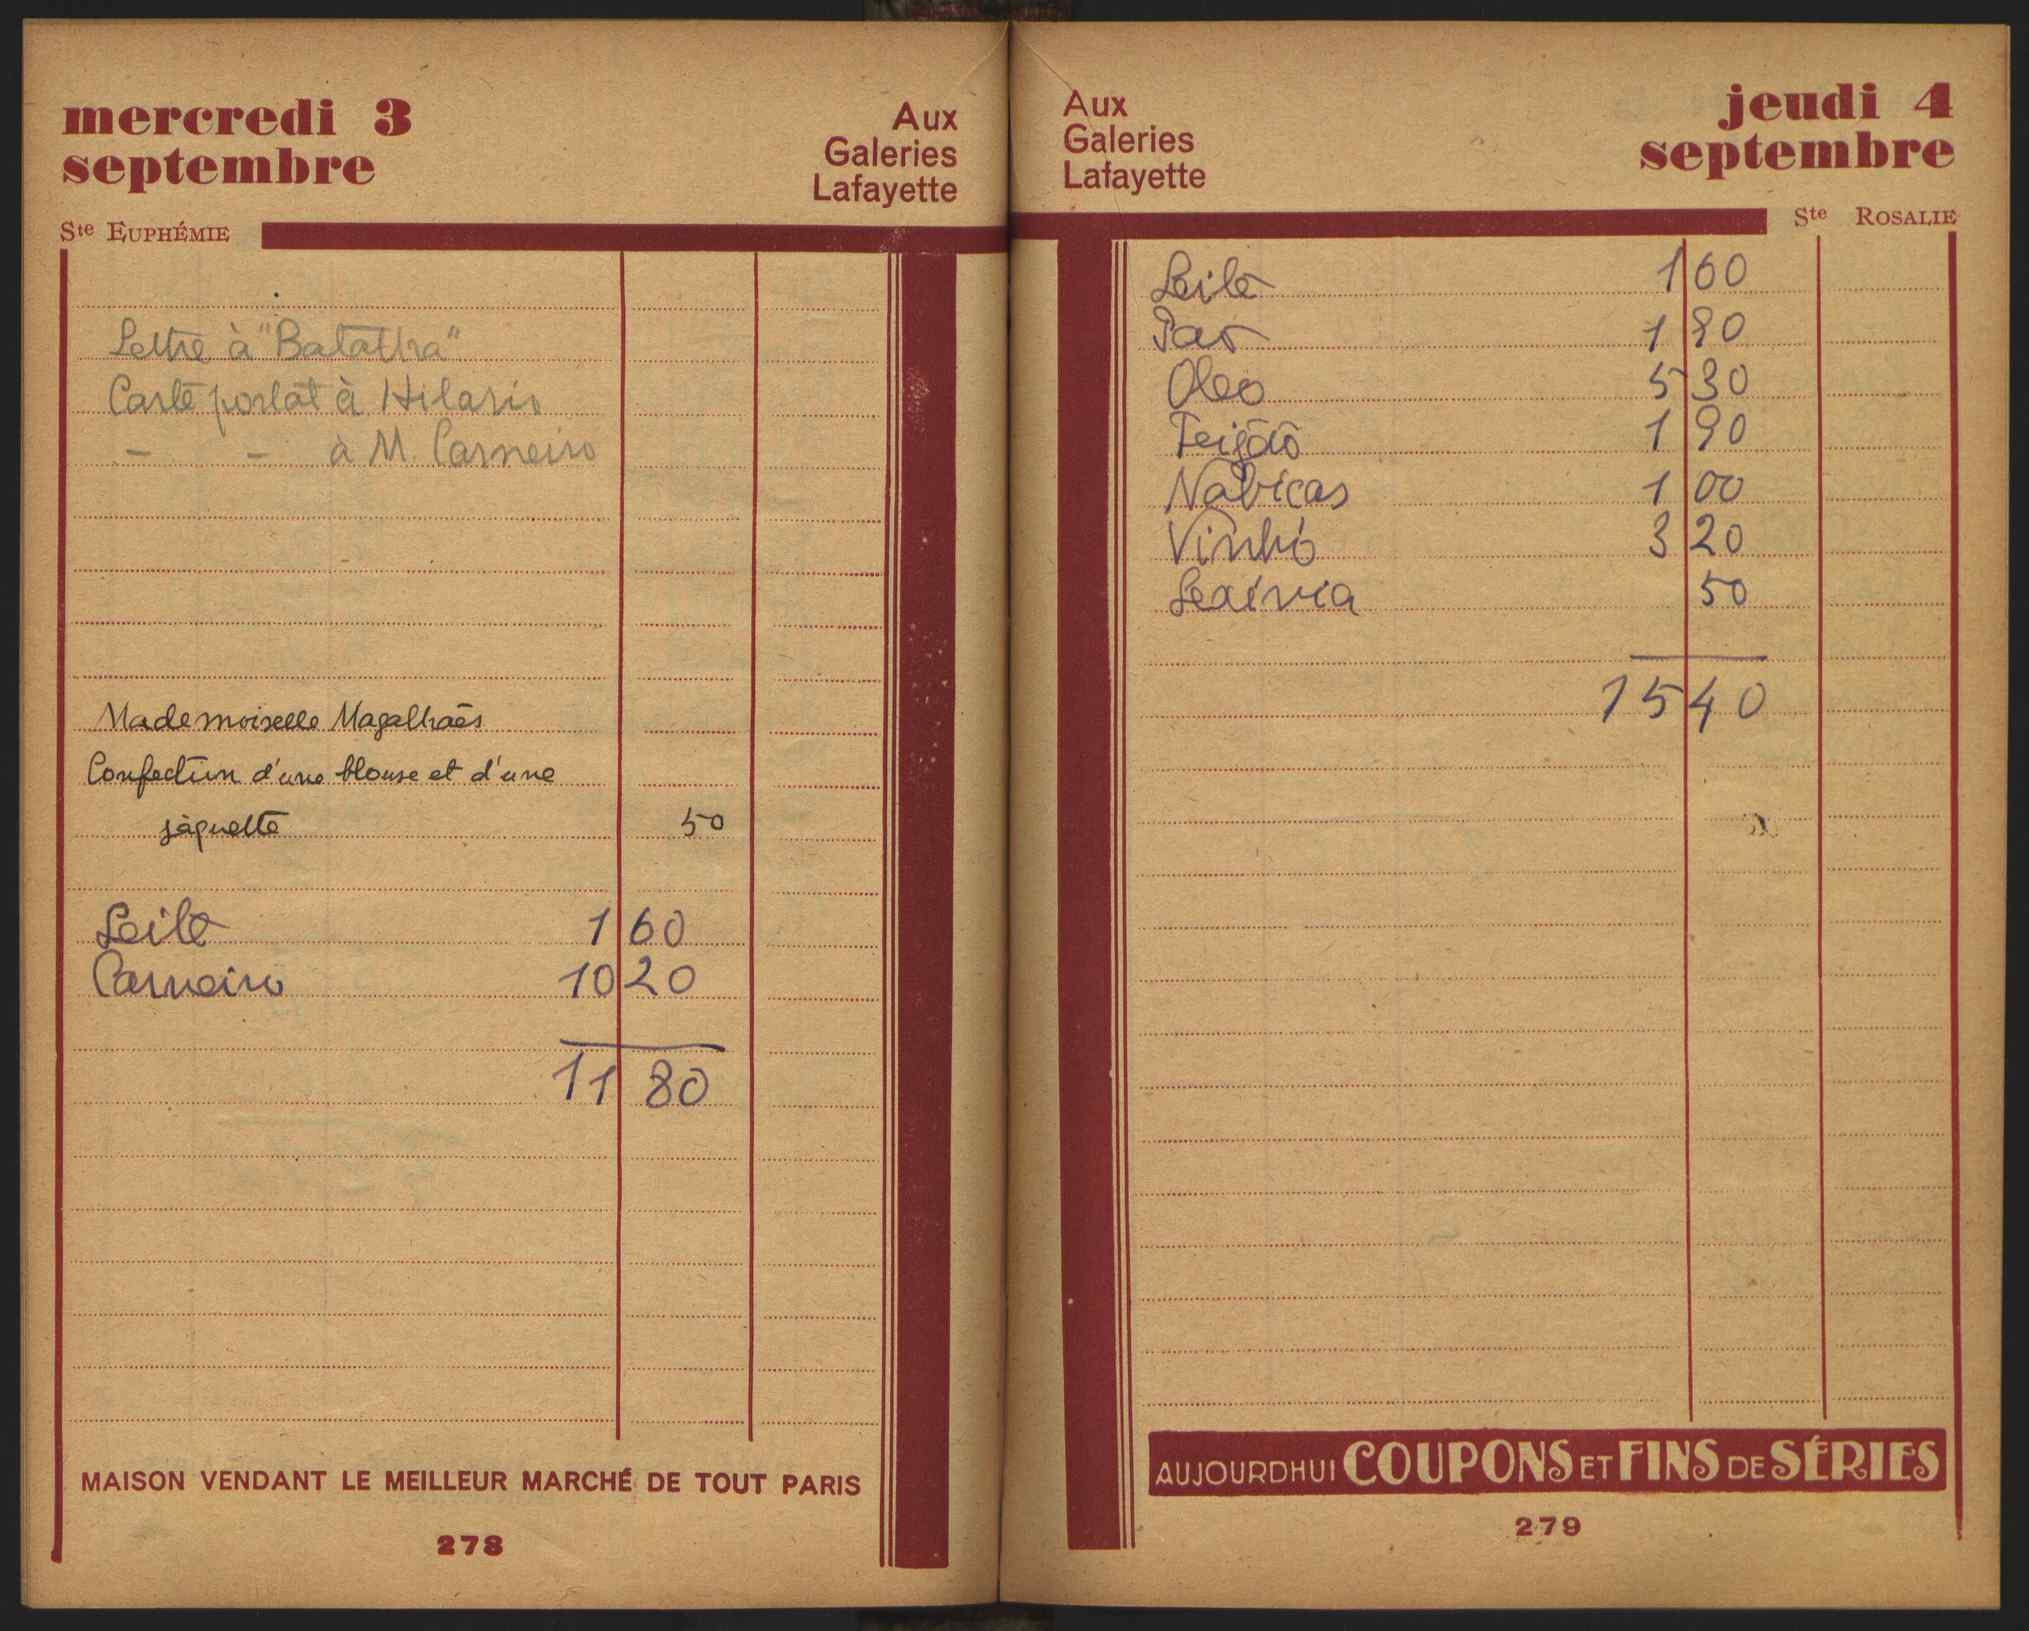 mercredi 3
septembre
Aux
Galeries
Lafayette
Ste EUPHÉMIE
Lettre à "Batalha"
Carte postat à Hilario
- - à M. Carneiro
Mademoiselle Magalhaes
Confection d'une blouse et d'une
jàquette 50
Leite 1 60
Carneiro 10 20
11 80
MAISON VENDANT LE MEILLEUR MARCHÉ DE TOUT PARIS
278
Aux
Galeries
Lafayette
jeudi 4
septembre
Ste ROSALIE
Leite 1 60
Pao 1 90
Oleo 5 30
Feijão 1 90
Nabiças 1 00
Vinho 3 20
Lexívia 50
15 40
AUJOURDHUI COUPONS ET FINS DE SÉRIES
279